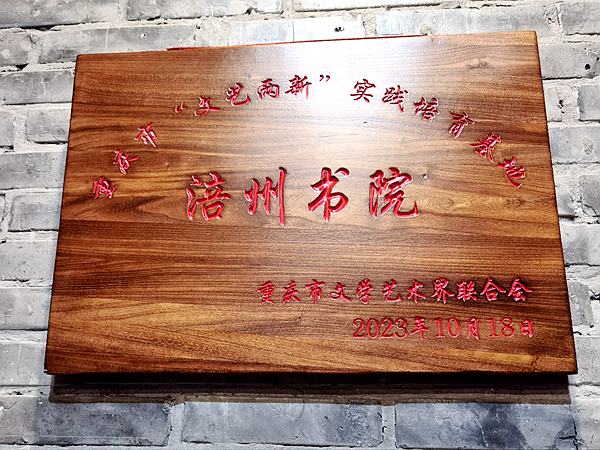 重庆市“文艺两新”实践培育基地
涪州书院
重庆市文学艺术界联合会
2023年10月18日